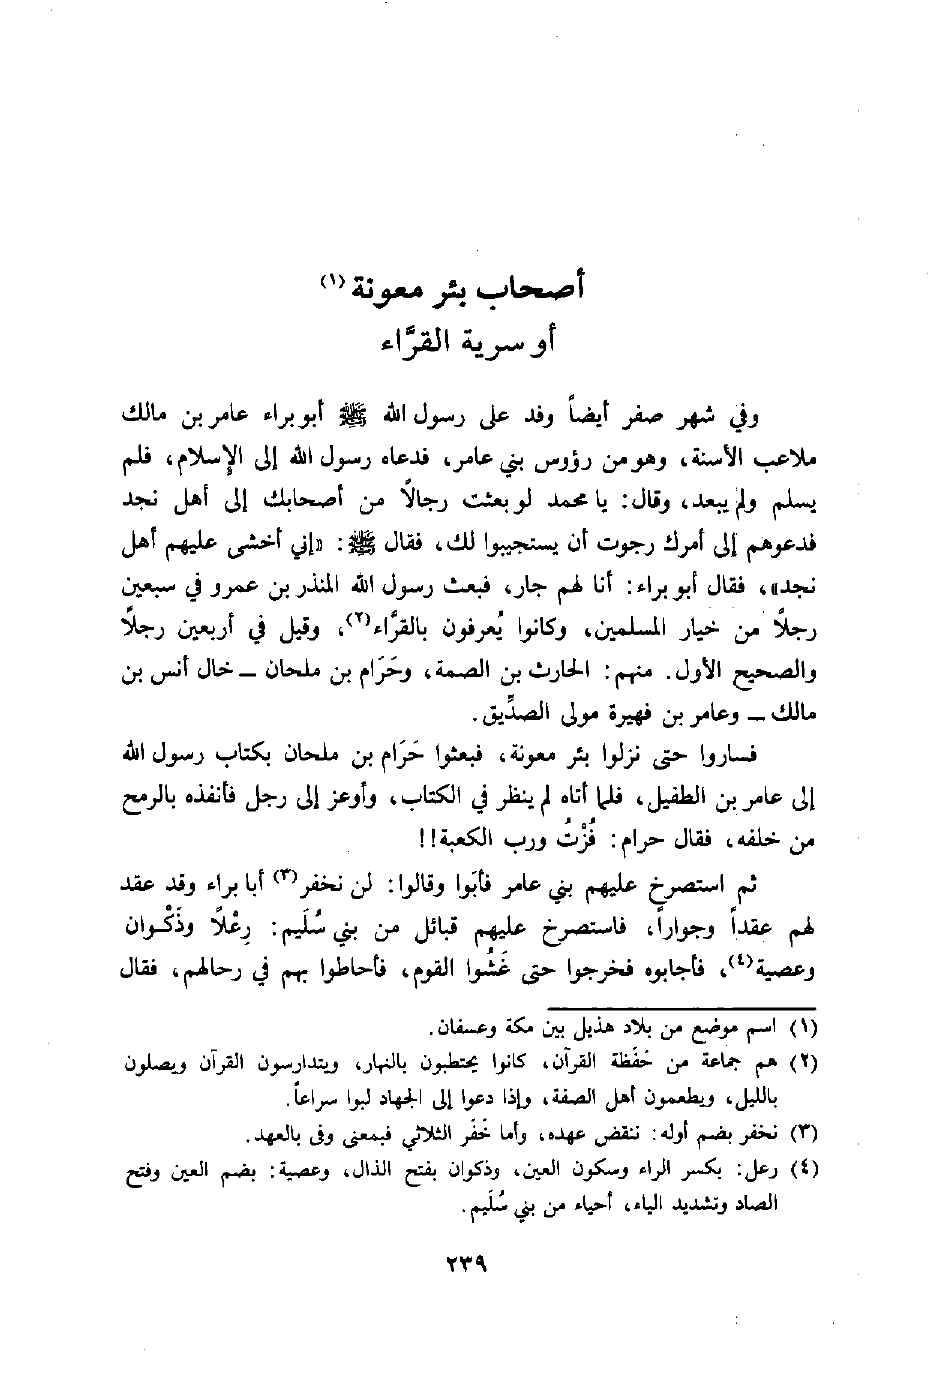 أصحاب بئر معونة (١)
أو سرية القرَّاء
وفي شهر صفر أيضاً وفد على رسول الله ﷺ أبو براء عامر بن مالك
ملاعب الأسنة، وهو من رؤوس بني عامر، فدعاه رسول الله إلى الإسلام، فلم
يسلم ولم يبعد، وقال: يا محمد لو بعثت رجالاً من أصحابك إلى أهل نجد
فدعوهم إلى أمرك رجوت أن يستجيبوا لك، فقال ﷺ: «إني أخشى عليهم أهل
نجد»، فقال أبو براء: أنا لهم جار، فبعث رسول الله المنذر بن عمرو في سبعين
رجلاً من خيار المسلمين، وكانوا يُعرفون بالقرَّاء(٢)، وقيل في أربعين رجلاً
والصحيح الأول. منهم: الحارث بن الصمة، وحَرَام بن ملحان ـ خال أنس بن
مالك ـ وعامر بن فهيرة مولى الصدِّيق.
فساروا حتى نزلوا بئر معونة، فبعثوا حَرَام بن ملحان بكتاب رسول الله
إلى عامر بن الطفيل، فلما أتاه لم ينظر في الكتاب، وأوعز إلى رجل فأنفذه بالرمح
من خلفه، فقال حرام: فُزْتُ ورب الكعبة!!
ثم استصرخ عليهم بني عامر فأبَوا وقالوا: لن نخفر(٣) أبا براء وقد عقد
لهم عقداً وجواراً، فاستصرخ عليهم قبائل من بني سُلَيم: رِعْلاً وذَكْوان
وعصية(٤)، فأجابوه فخرجوا حتى غَشُوا القوم، فأحاطوا بهم في رحالهم، فقال
(١) اسم موضع من بلاد هذيل بين مكة وعسفان.
(٢) هم جماعة من حَفَظة القرآن، كانوا يحتطبون بالنهار، ويتدارسون القرآن ويصلون
بالليل، ويطعمون أهل الصفة، وإذا دعوا إلى الجهاد لبوا سراعاً.
(٣) نخفر بضم أوله: ننقض عهده، وأما خَفَر الثلاثي فبمعنى وفى بالعهد.
(٤) رعل: بكسر الراء وسكون العين، وذكوان بفتح الذال، وعصية: بضم العين وفتح
الصاد وتشديد الياء، أحياء من بني سُلَيم.
٢٣٩